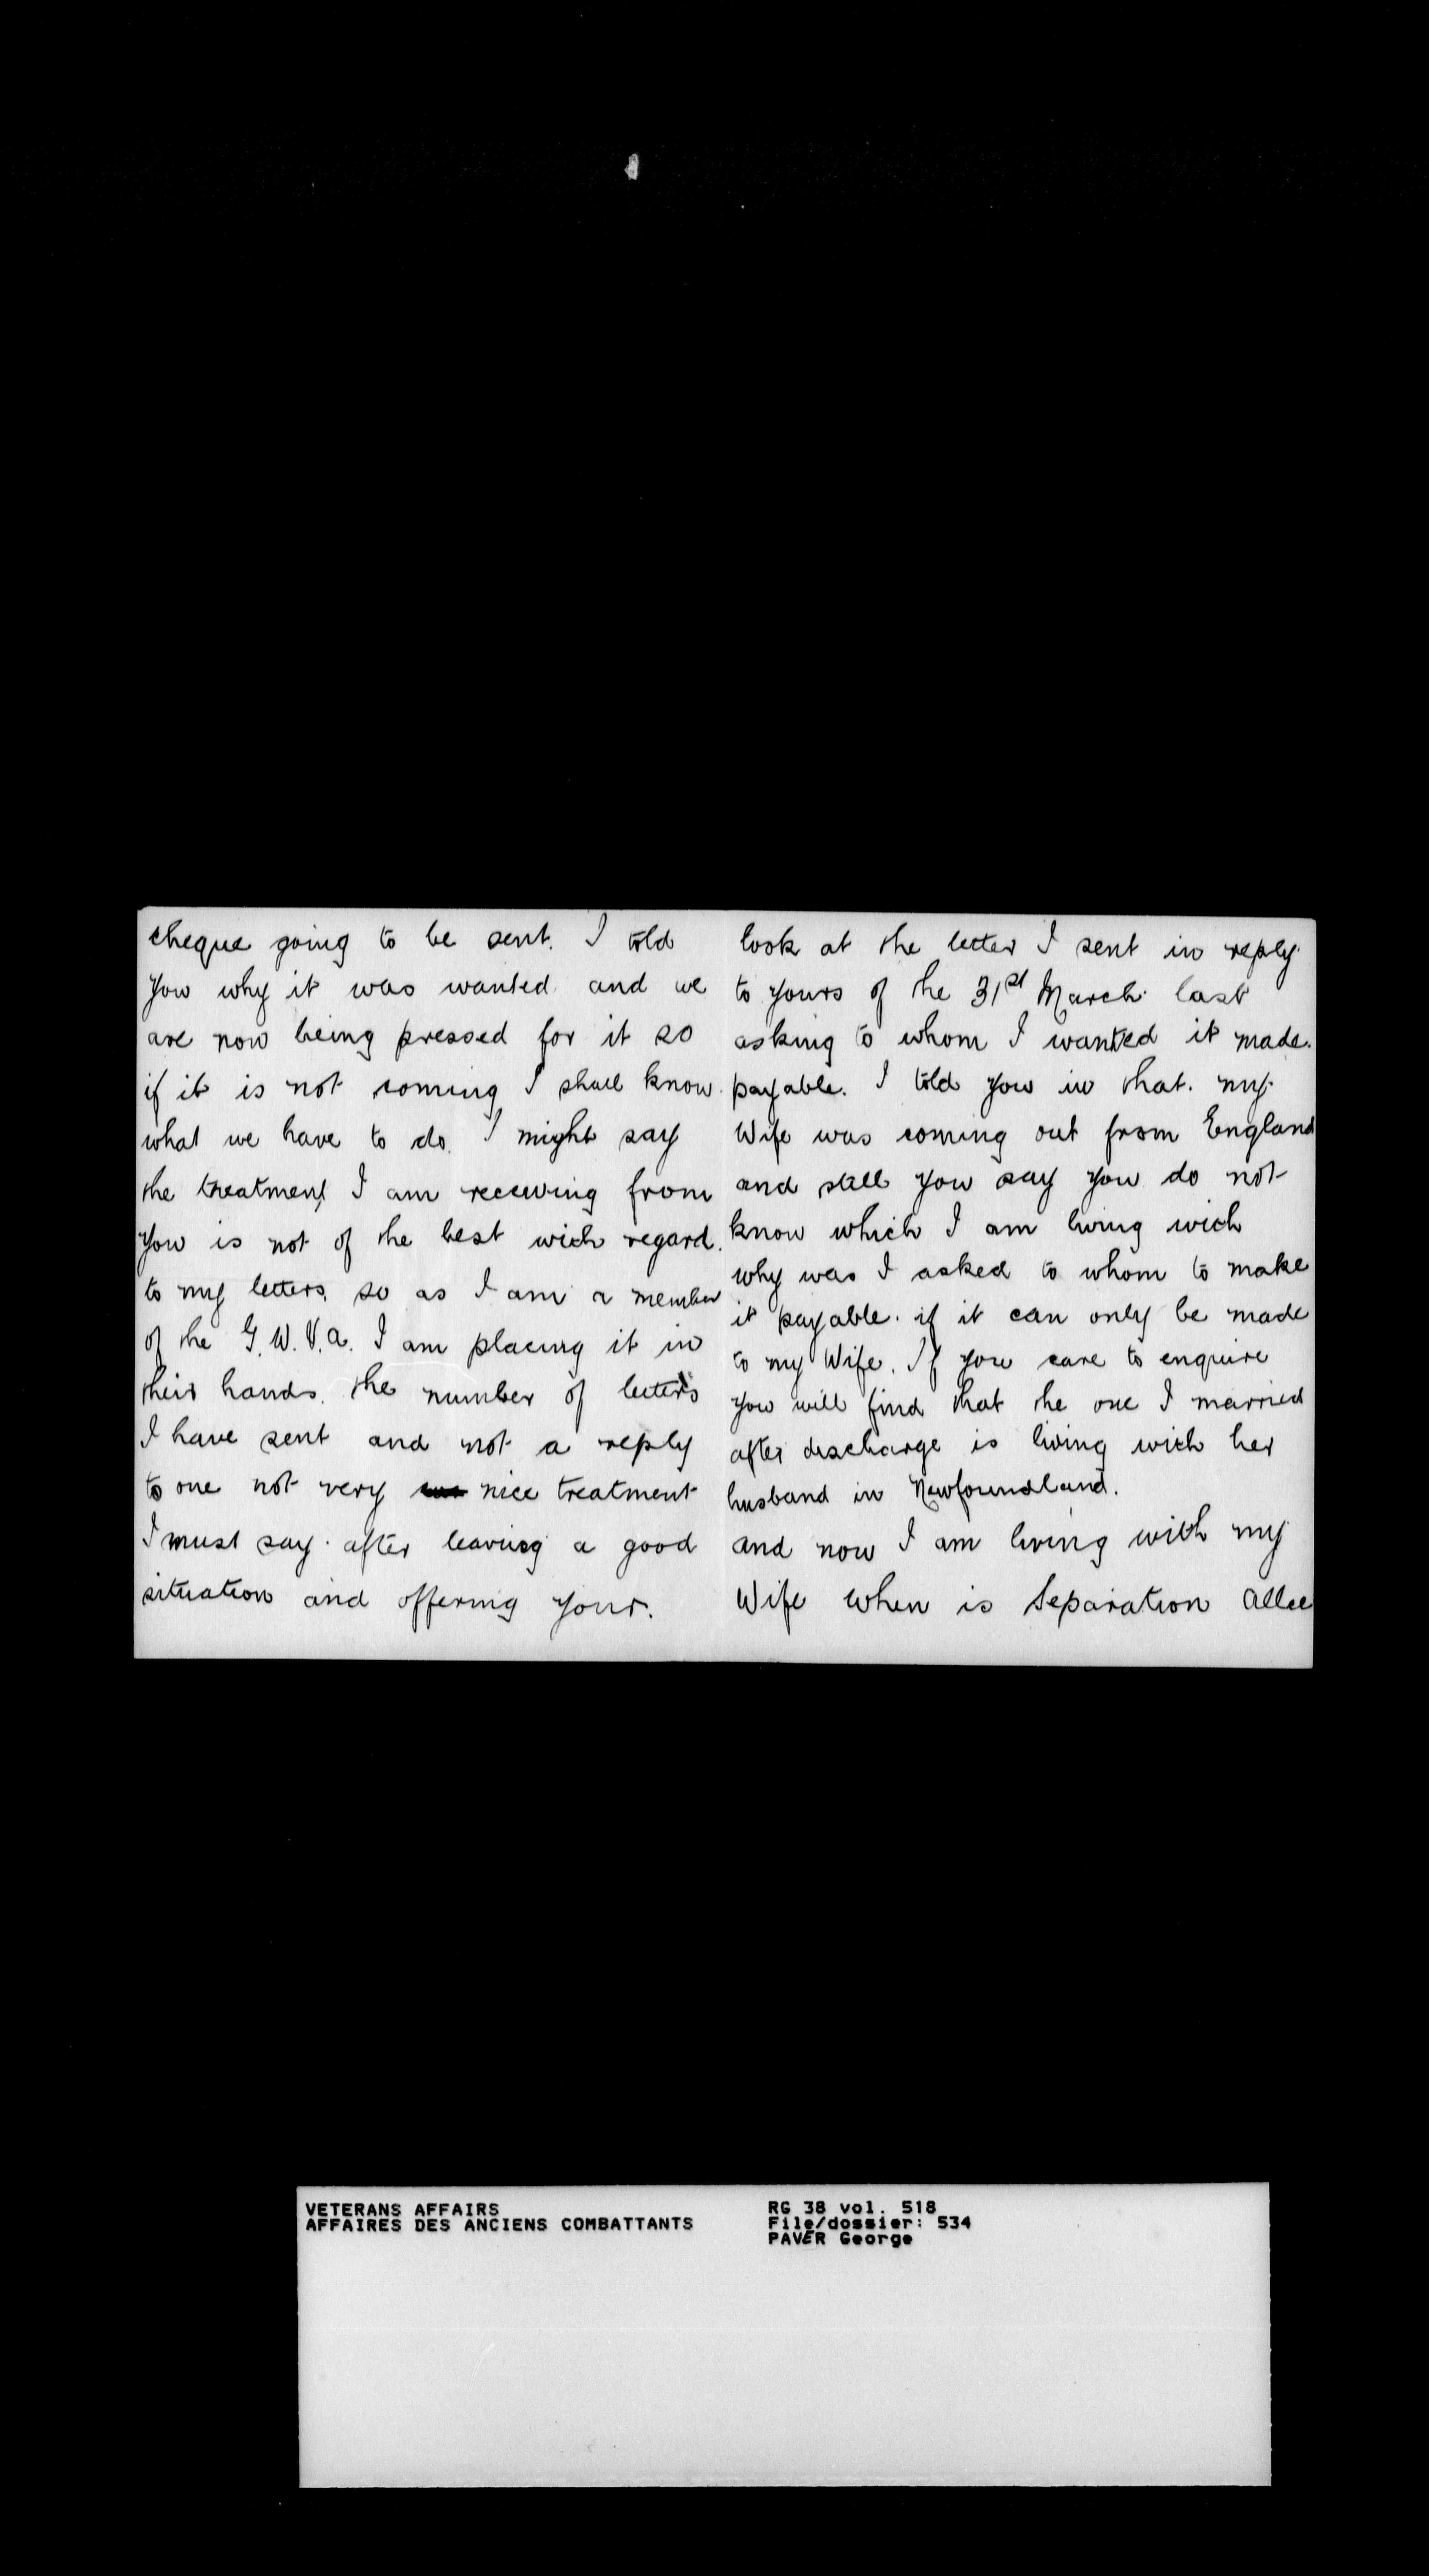 cheque going to be sent. I told
you why it was wanted and we
are now being pressed for it so
if it is not coming I shall know
what we have to do. I might say
the treatment I am receiving from
you is not of the best with regard
to my letters, so as I am a member
of the G.W.V.A. I am placing it in
their hands. the number of letters
I have sent and not a reply
to one not very nice treatment
I must say. after leaving a good
situation and offering your.
look at the letter I sent in reply
to yours of the 31st March last
asking to whom I wanted it made
payable. I told you in that. my
Wife was coming out from England
and still you say you do not
know which I am living with
why was I asked to whom to make
it payable. if it can only be made
to my Wife. If you care to enquire
you will find that the one I married
after discharge is living with her
husband in Newfoundland.
and now I am living with my
Wife when is Separation Allce
VETERANS AFFAIRS
AFFAIRES DES ANCIENS COMBATTANTS
RG 38 vol. 518
File/dossier: 534
PAVER George